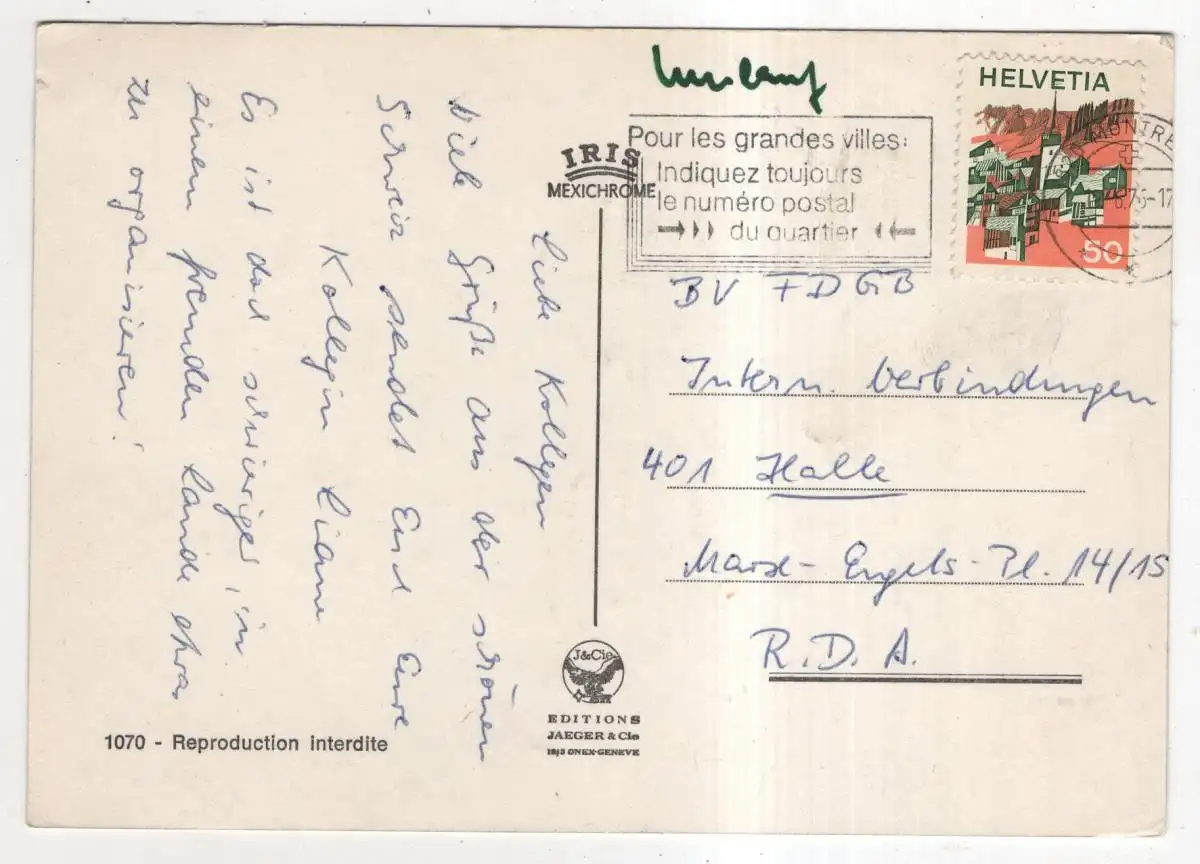 Umlauf
HELVETIA
50
MONTRE
Pour les grandes villes:
Indiquez toujours
le numéro postal
du quartier
IRIS
MEXICHROME
Liebe Kollegen
Viele Grüße aus der schönen
Schweiz sendet Euch Eure
Kollegin Liane
Es ist doch schwieriger, in
einem fremden Lande etwas
zu organisieren!
BV FDGB
Intern. Verbindungen
401 Halle
Marx-Engels-Pl. 14/15
R.D.A.
J&Cie
EDITIONS
JAEGER & Cie
1213 ONEX-GENEVE
1070 - Reproduction interdite